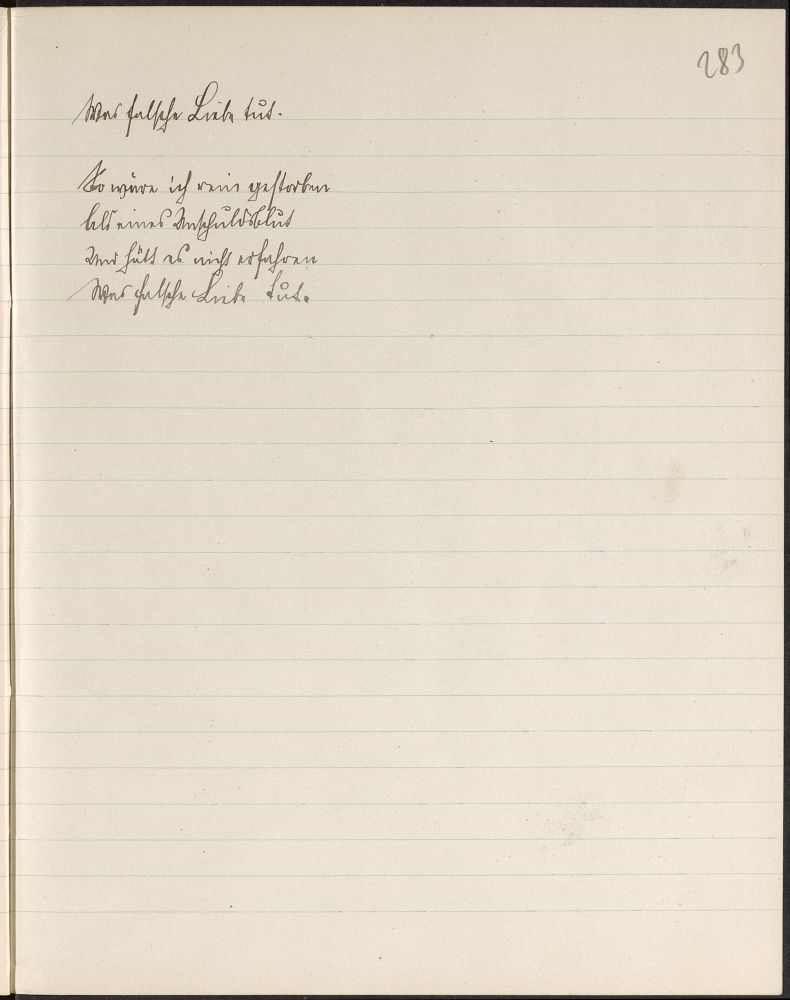 283
Was falsche Liebe tut.
So wäre ich rein gestorben
Als eines Unschuldsblut
Und hätt es nicht erfahren
Was falsche Liebe tut.